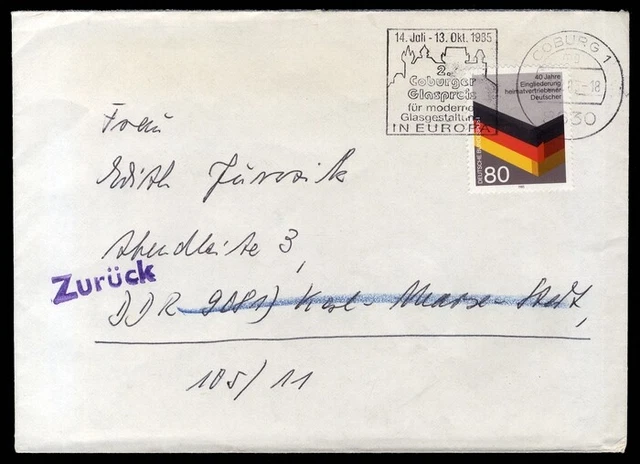 14. Juli - 13. Okt. 1985
2.
Coburger
Glaspreis
für moderne
Glasgestaltung
IN EUROPA
COBURG 1
-18
30
40 Jahre
Eingliederung
heimatvertriebener
Deutscher
DEUTSCHE BUNDESPOST
80
Frau
Edith
3,
Zurück
DDR Karl-Marx-Stadt,
105/11